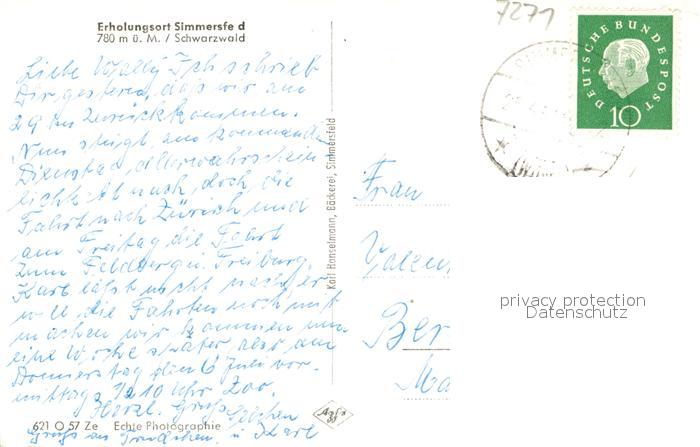 Erholungsort Simmersfe d
780 m ü. M. / Schwarzwald
Liebe Wally Ich schrieb
Dir gestern, daß wir am
29ten zurückkommen.
Nun steigt am kommenden
Dienstag, allerwahrschein
lichkeit nach, doch die
Fahrt nach Zürich und
am Freitag die Fahrt
zum Feldberg u. Freiburg.
Karl läßt nicht nach, er
will die Fahrten noch mit
machen wir kommen nun
eine Woche später also am
Donnerstag den 6 Juli vor-
mittags 1/2 10 Uhr Zoo.
Herzl. Grüße
Gruß an u Karl
621 O 57 Ze Echte Photographie
Agfa
Karl Hanselmann, Bäckerei, Simmersfeld
7271
DEUTSCHE BUNDESPOST
10
Frau
Valen
Ber
privacy protection
Datenschutz